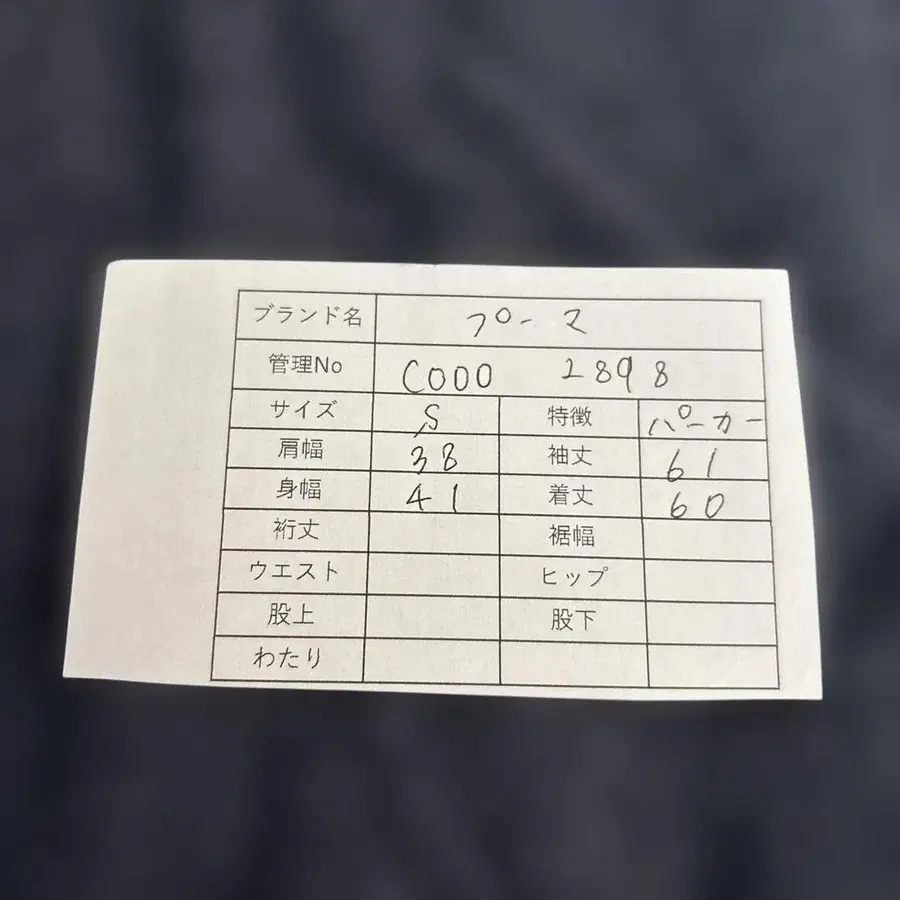 ブランド名 プーマ
管理No C000 2898
サイズ S 特徴 パーカー
肩幅 38 袖丈 61
身幅 41 着丈 60
裄丈 裾幅
ウエスト ヒップ
股上 股下
わたり